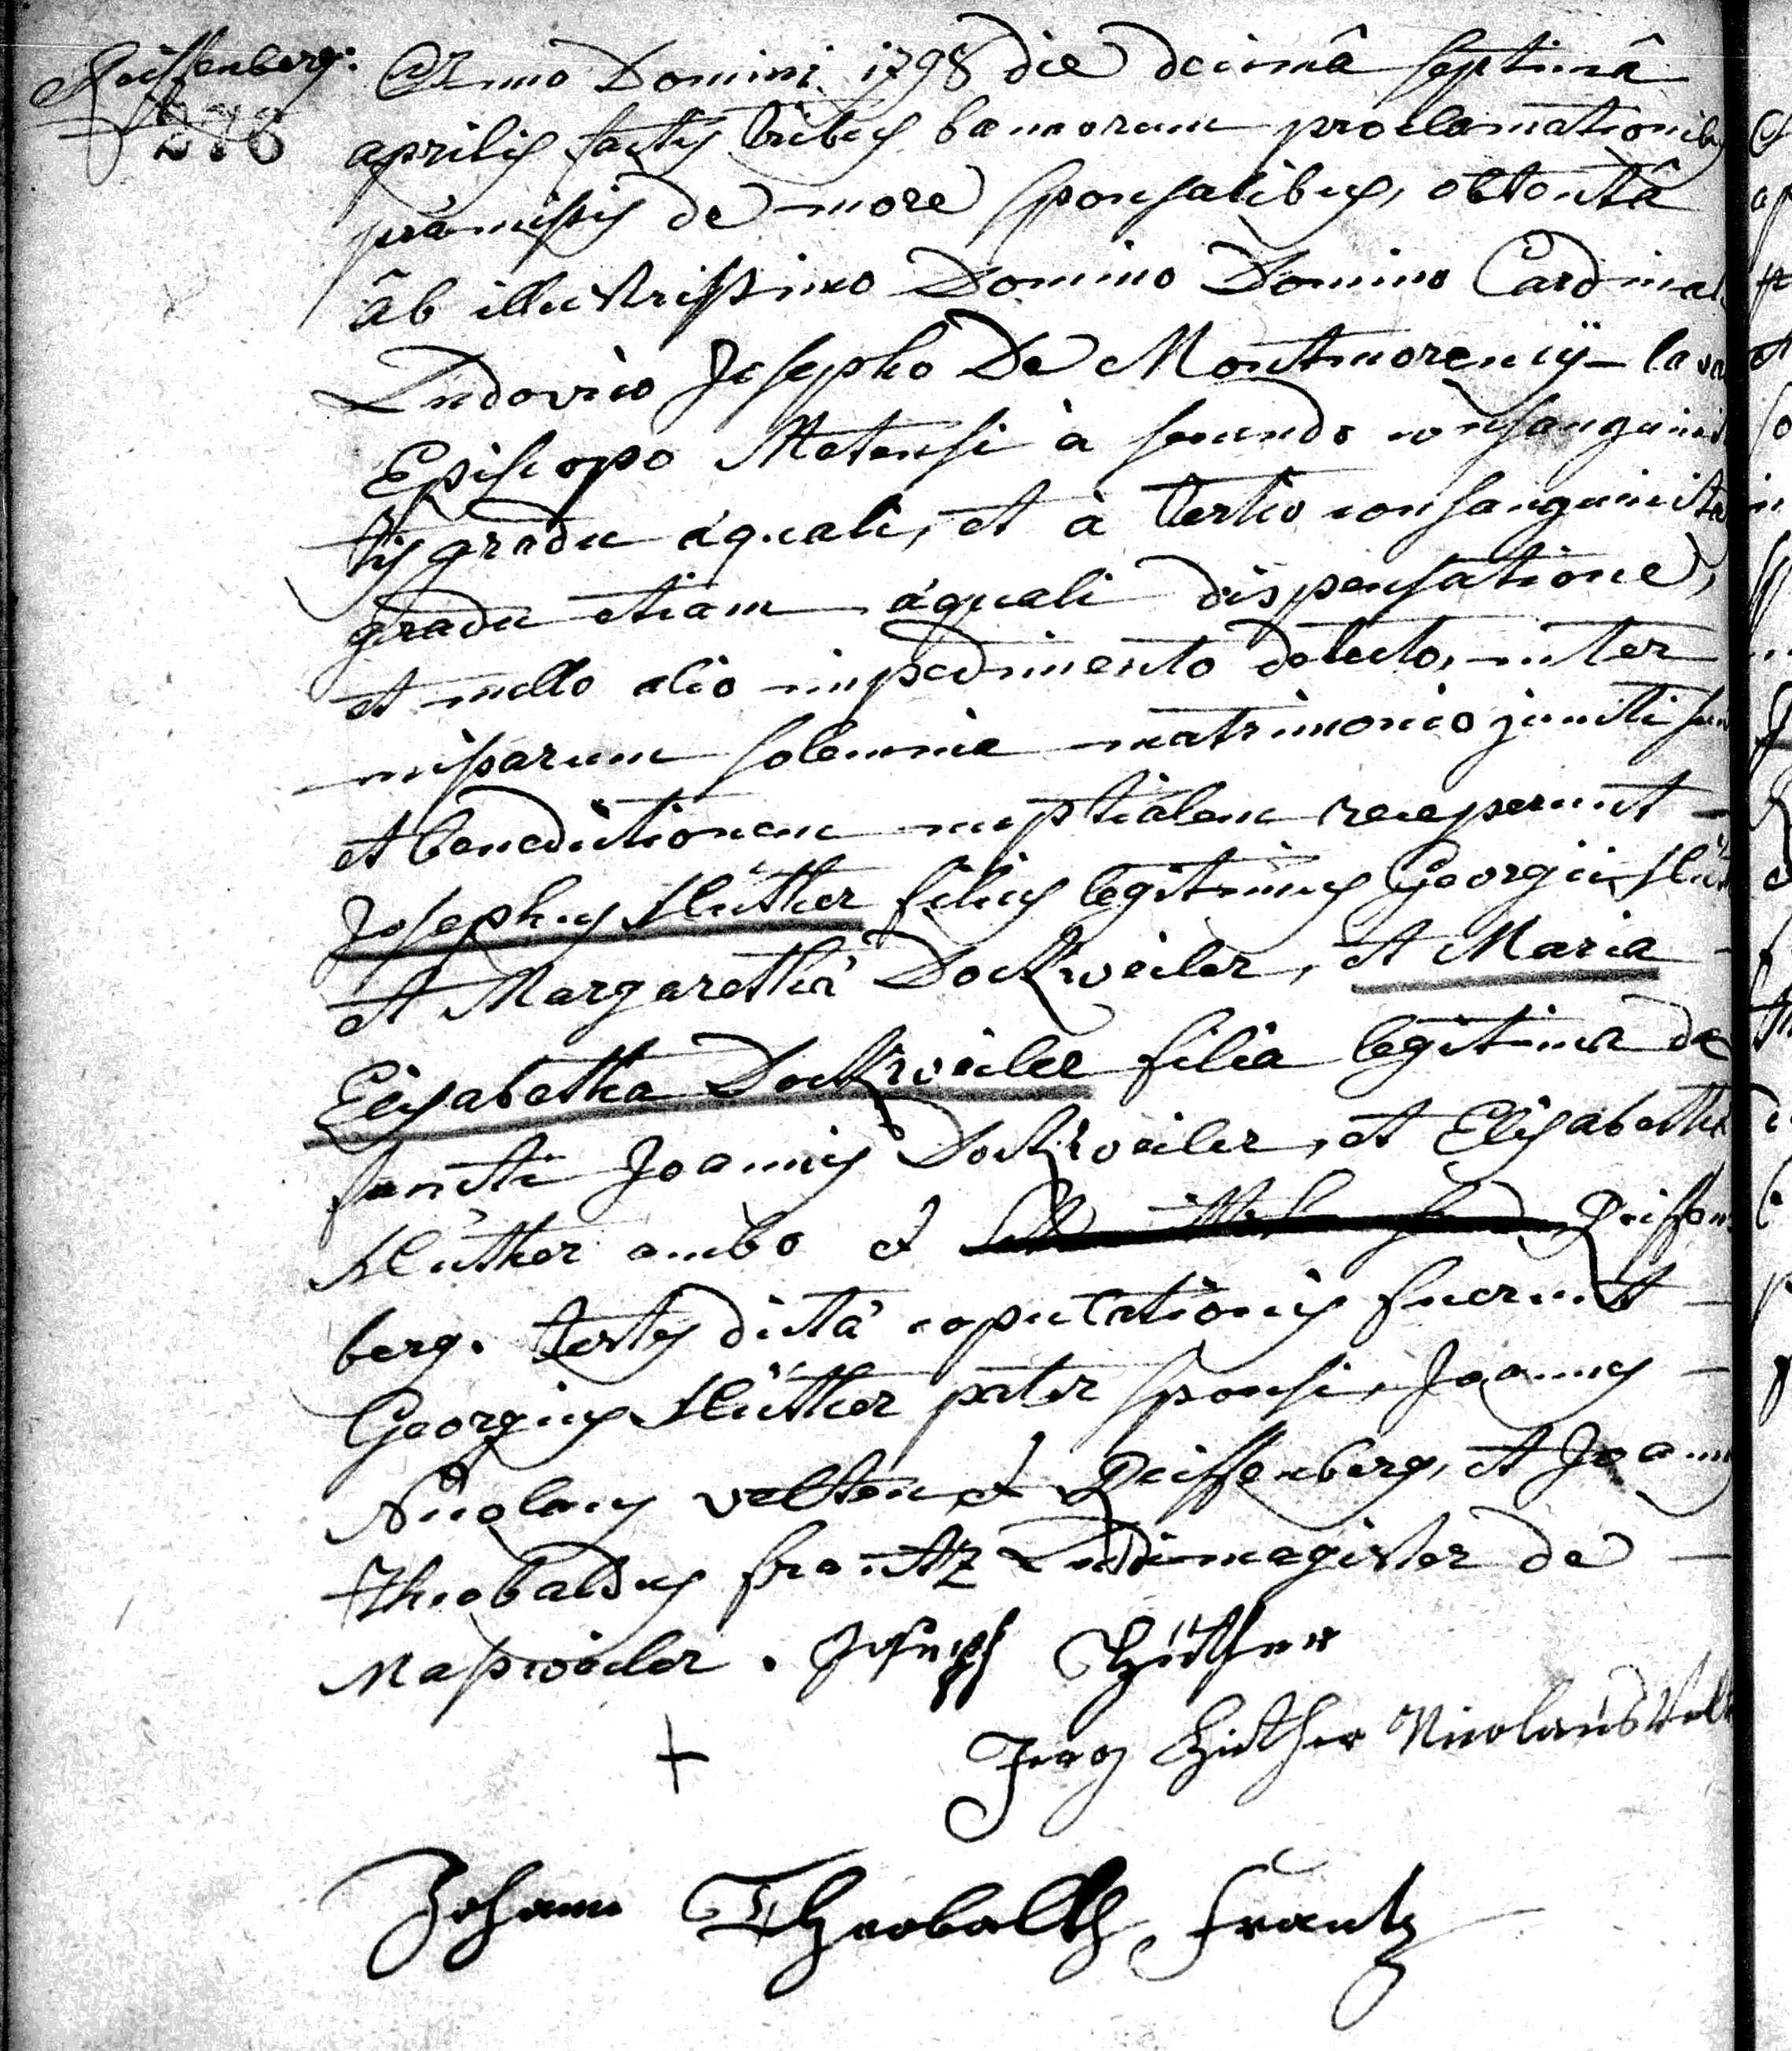 Reiffenberg:
278
Anno Domini 1798 die decimâ septimâ
aprilis factis tribus bannorum proclamationibus
præmissis de more sponsalibus, obtentâ
ab illustrissimo Domino Domino Cardinal
Ludovico Josepho De Montmorencÿ-laval
Episcopo Metensi à secundo consanguinita
tis gradu æquali, et à tertio consanguinita
gradu etiam æquali dispensatione,
et nullo alio impedimento detecto, inter
missarum solemnia matrimonio juncti sunt
et benedictionem nuptialem receperunt
Josephus Hüther filius legitimus Georgii Hüt
et Margarethæ Dockweiler, et Maria
Elisabetha Dockweiler filia legitima de
functi Joannis Dockweiler, et Elisabethæ
Hüther ambo ex Reiffen
berg. testes dictæ copulationis fuerunt
Georgius Hüther pater sponsi, Joannes
Nicolaus velten ex Reiffenberg, et Joann
Theobaldus frantz Ludimagister de
Masweiler. Joseph Hüther
+ Jerg Hüther Nicolaus Velt
Johann Theobalth Frantz